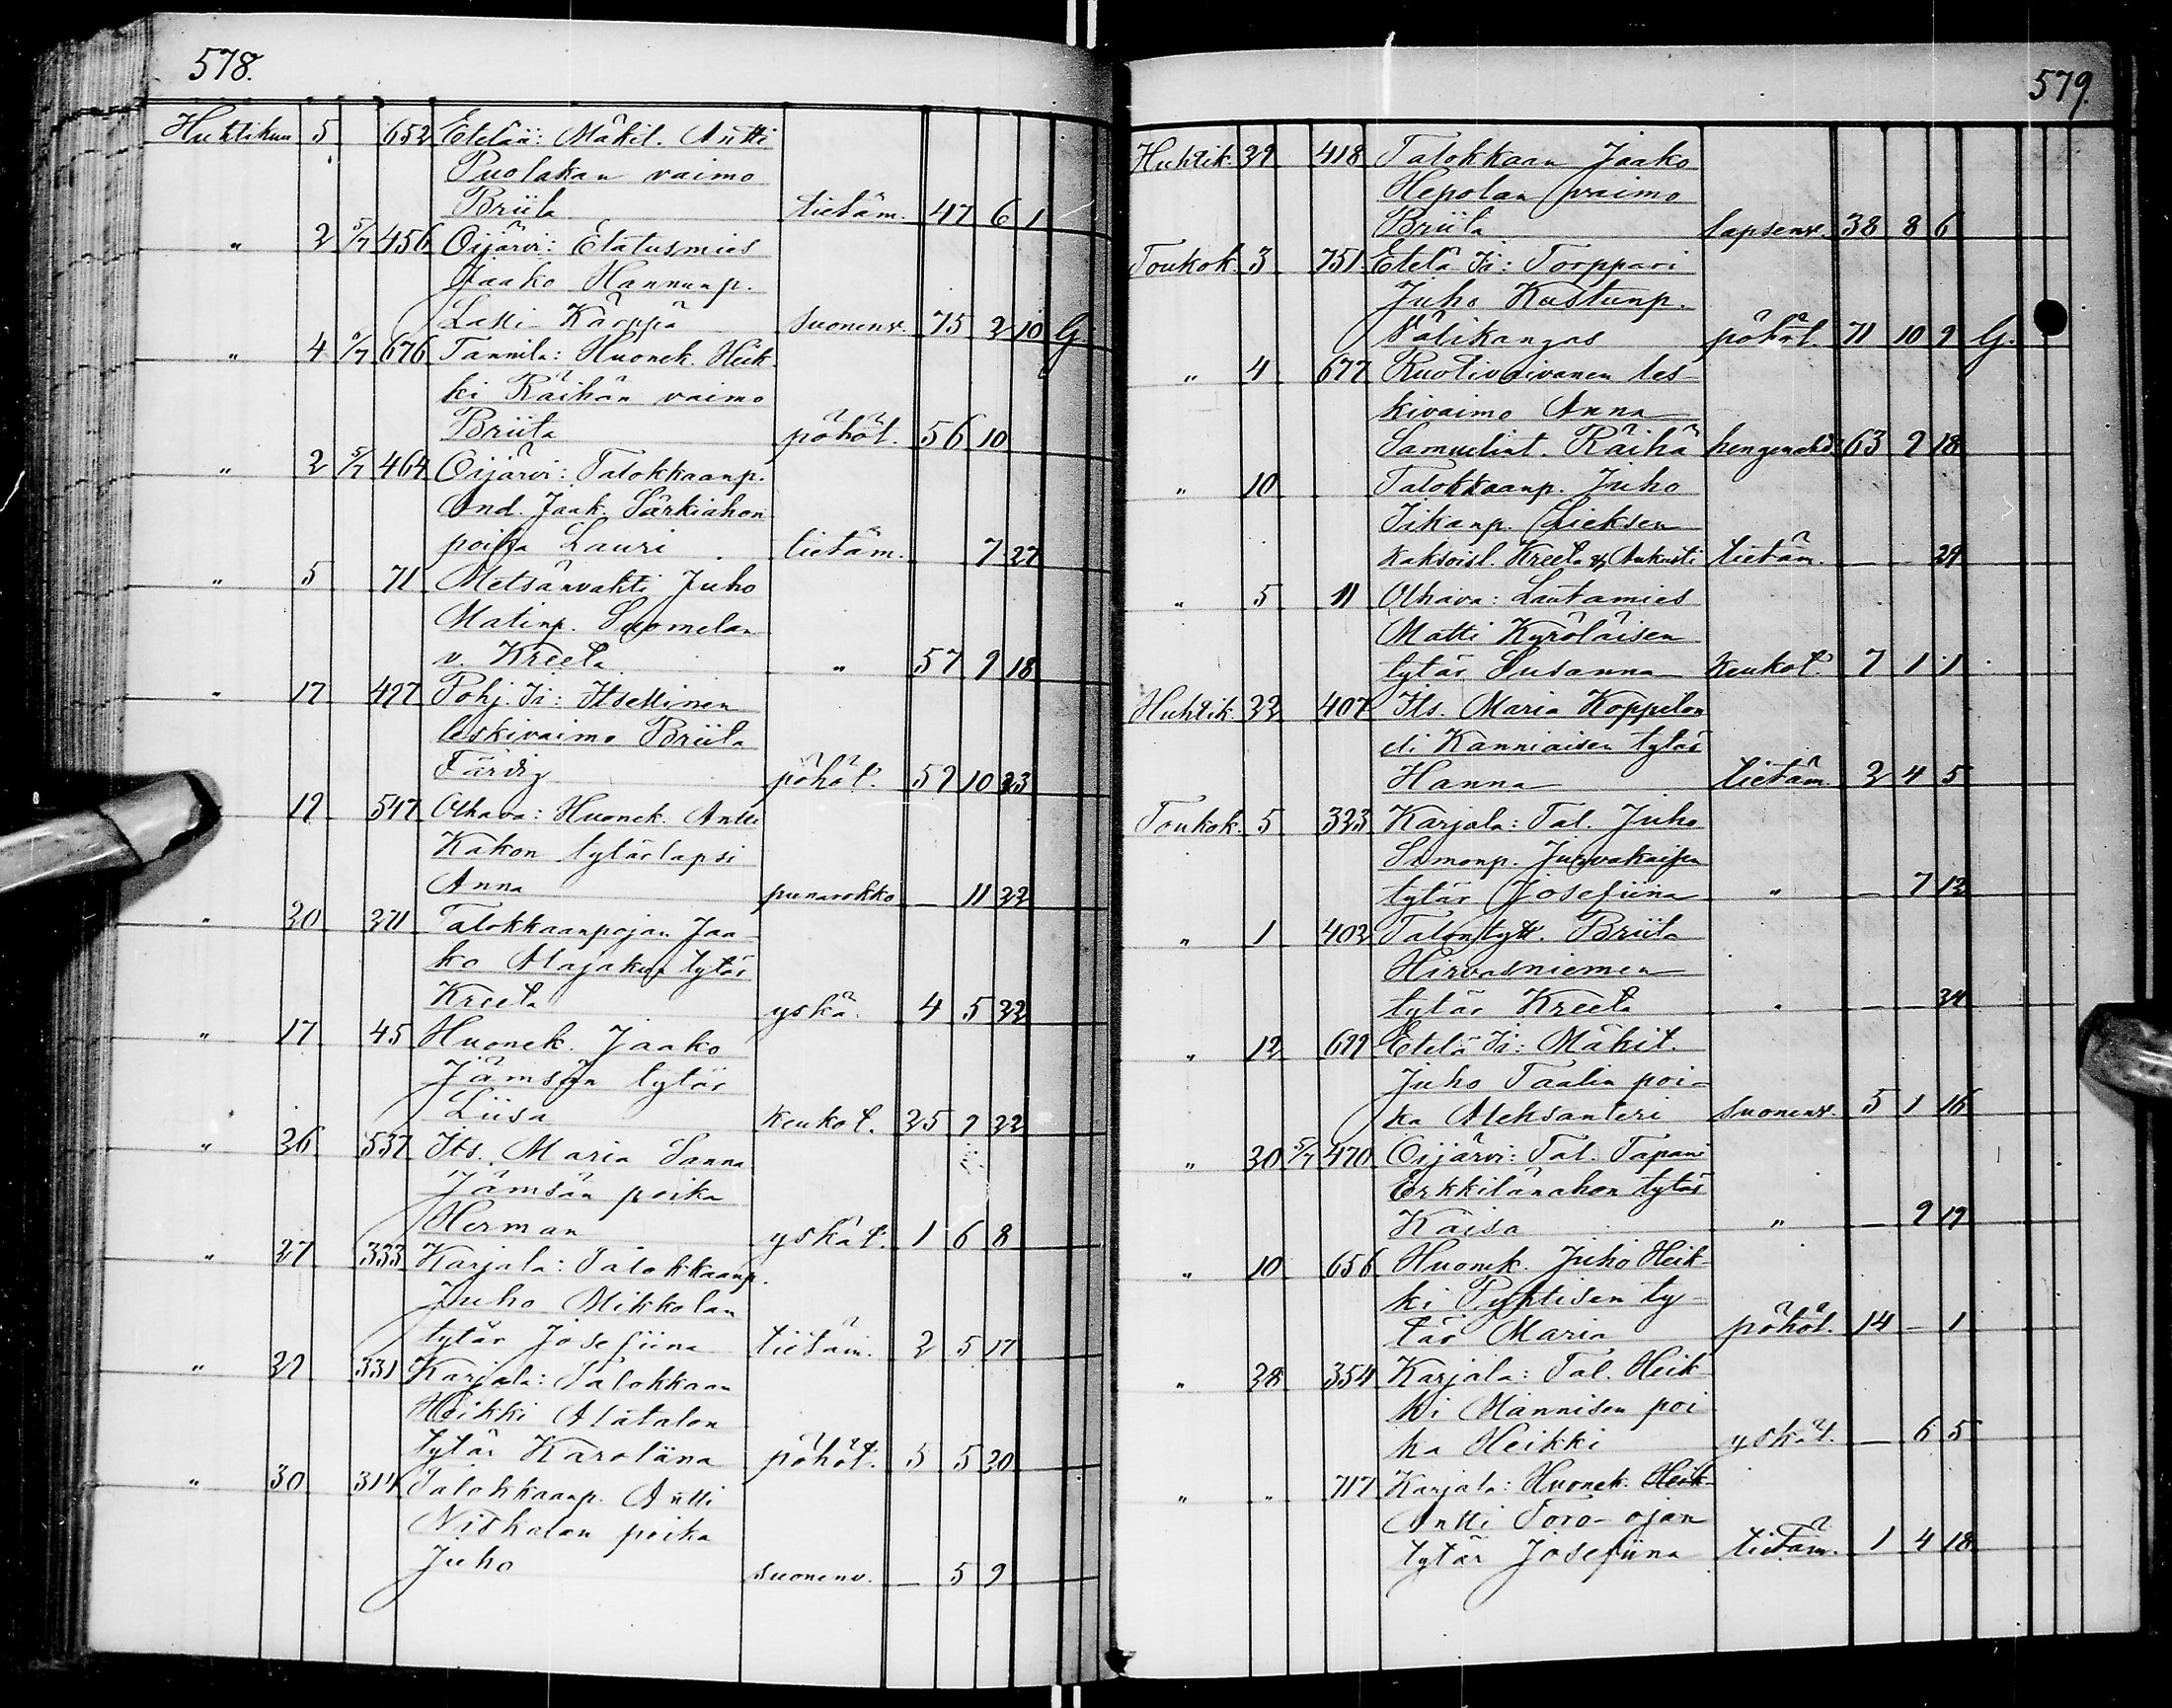 578.
Huhtikuu 5 652 Eteläii: Mäkit. Antti
Puolakan vaimo
Briita tietäm. 47 6 1
" 2 5/7 456 Oijärvi: Elätusmies
Jaako Hannunp.
Lassi-Kärppä suonenv. 75 2 10 lj.
" 4 9/7 676 Tannila: Huonek. Heik-
ki Räihän vaimo
Briita pöhöt. 56 10
" 2 5/7 464 Oijärvi: Talokkaanp.
And. Jaak. Särkiahon
poika Lauri tietäm. 7 27
" 5 71 Metsänvahti Juho
Matinp. Suomelan
v. Kreeta " 57 9 18
" 17 497 Pohj. Ii: Itsellinen
leskivaimo Briita
Färdig pöhöt. 59 10 23
19 547 Olhava: Huonek. Antti
Kakon tytärlapsi
Anna punarokko — 11 22
" 20 271 Talokkaanpojan Jaa-
ko Alajakun tytär
Kreeta yskä. 4 5 22
" 17 45 Huonek. Jaako
Jämsän tytär
Liisa keukot. 25 9 22
" 26 537 Its. Maria Sanna
Jämsän poika
Herman yskät. 1 6 8
" 27 333 Karjala: Talokkaanp.
Juho Mikkolan
tytär Josefiina tietäm. 2 5 17
" 29 331 Karjala: Talokkaan
Heikki Alatalon
tytär Karoliina pöhöt. 5 5 20
" 30 314 Talokkaanp. Antti
Niskalan poika
Juho suonenv. — 5 9
579.
Huhtik. 29 418 Talokkaan Jaako
Hepolan vaimo
Briita lapsenv. 38 8 6
Toukok. 3 751 Etelä Ii: Torppari
Juho Kustunp.
Välikangas pöhöt. 71 10 9 lj.
" 4 677 Ruotivaivanen les-
kivaimo Anna
Samuelint. Räihä hengenahd. 63 9 18
" 10 Talokkaanp. Juho
Iikanp. Lieksen
kaksoisl. Kreeta & Aukusti tietäm. — — 29
" 5 11 Olhava: Lautamies
Matti Kyröläisen
tytär Susanna keukot. 7 1 1
Huhtik. 22 407 Its. Maria Koppelon
eli Kanniaisen tytär
Hanna tietäm. 2 4 5
Toukok. 5 323 Karjala: Tal. Juho
Simonp. Jurvakaisen
tytär Josefiina " — 7 12
" 1 402 Talontytt. Briita
Hirvasniemen
tytär Kreeta " — — 24
" 12 699 Etelä Ii: Mäkit.
Juho Taalin poi-
ka Aleksanteri suonenv. 5 1 16
" 20 5/7 470 Oijärvi: Tal. Tapani
Erkkilänahon tytär
Kaisa " — 9 19
" 10 656 Huonek. Juho Heik-
ki Pyhtisen ty-
tär Maria pöhöt. 14 — 1
" 28 354 Karjala: Tal. Heik-
ki Männisen poi-
ka Heikki yskät. — 6 5
" " 717 Karjala: Huonek. Heik-
Antti Toro-ojan
tytär Josefiina tietäm. 1 4 18